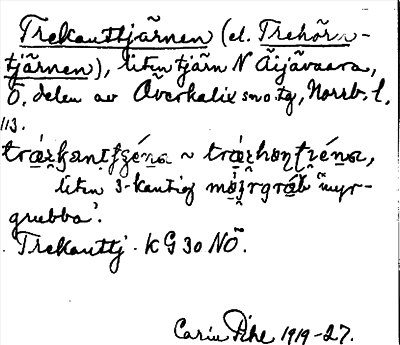 Trekanttjärnen (el. Trehörn-
tjärnen), liten tjärn N Äijävaara,
Ö. delen av Överkalix sn o. tg, Norrb. l.
113.
liten 3-kantig "myr-
grubba".
Trekanttj. K G 30 NÖ.
Carin Pihl 1919-27.